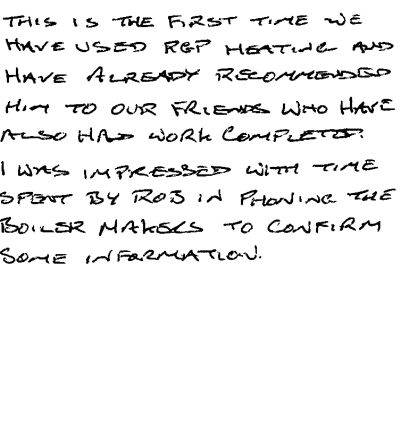 THIS IS THE FIRST TIME WE
HAVE USED RGP HEATING AND
HAVE ALREADY RECOMMENDED
HIM TO OUR FRIENDS WHO HAVE
ALSO HAD WORK COMPLETED.
I WAS IMPRESSED WITH TIME
SPENT BY ROB IN PHONING THE
BOILER MAKERS TO CONFIRM
SOME INFORMATION.